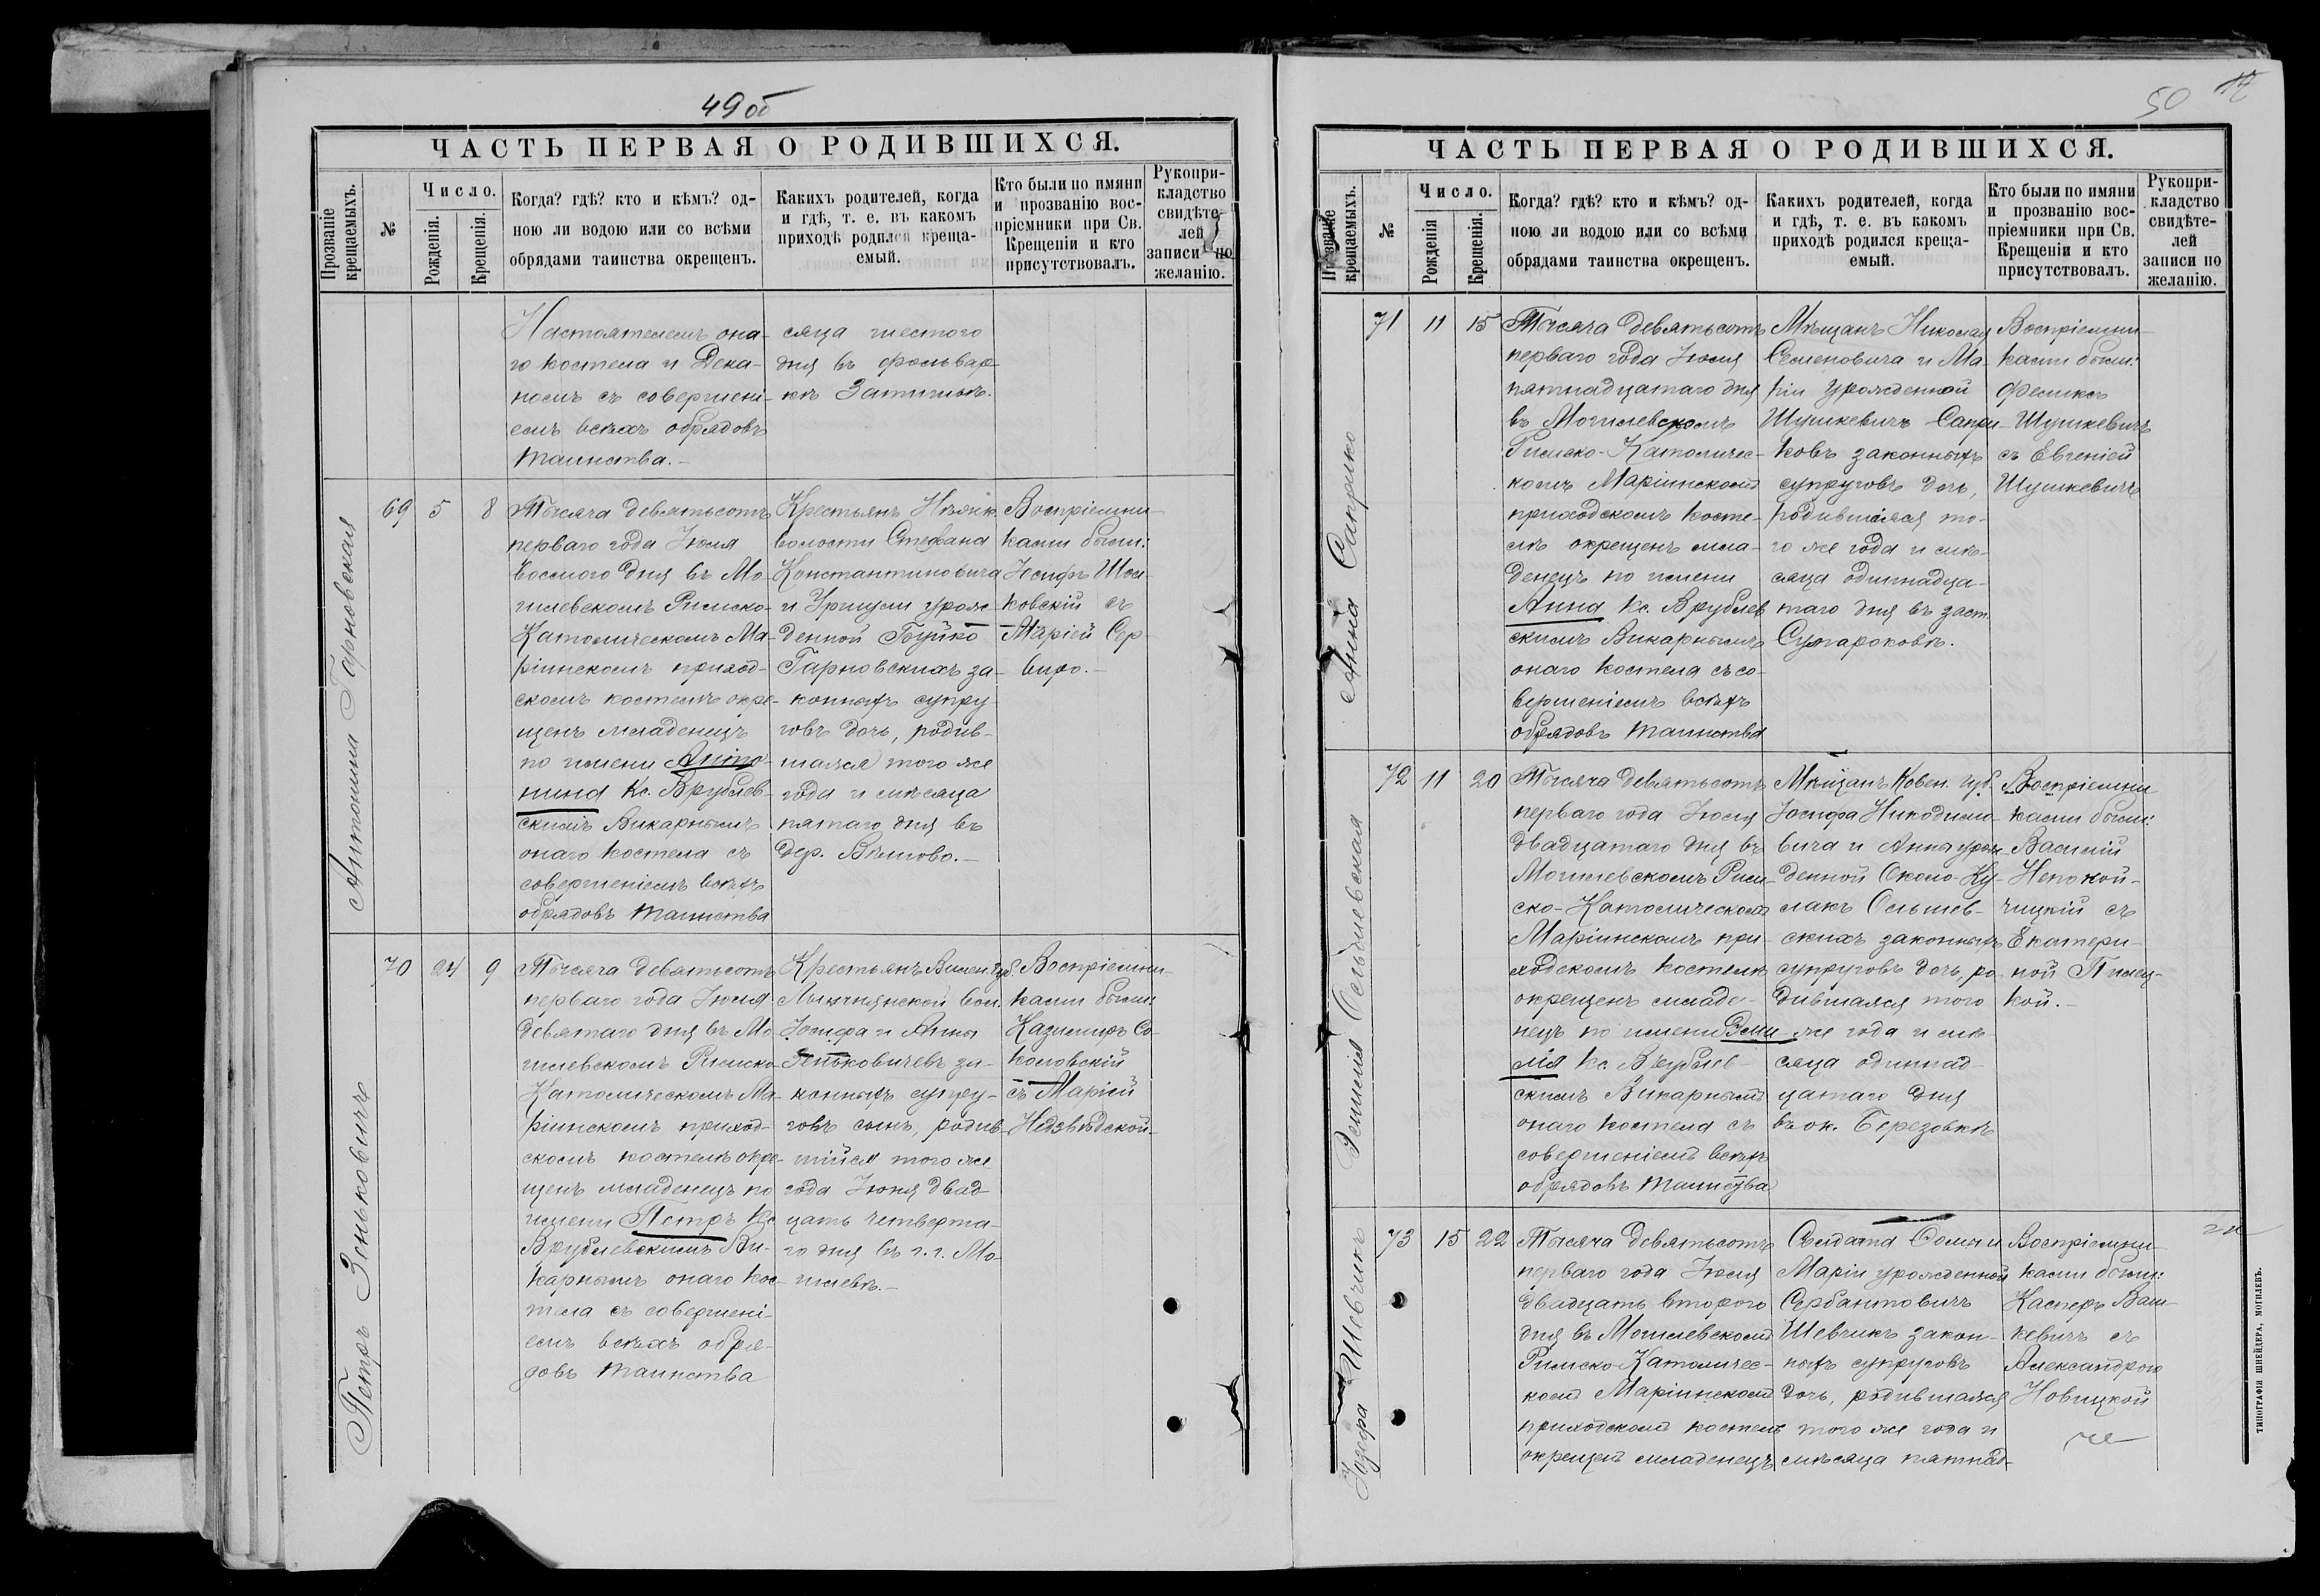 49 об
ЧАСТЬ ПЕРВАЯ О РОДИВШИХСЯ.
Прозваніе крещаемыхъ.
№
Число.
Рожденія.
Крещенія.
Когда? гдѣ? кто и кѣмъ? од-
ною ли водою или со всѣми
обрядами таинства окрещенъ.
Какихъ родителей, когда
и гдѣ, т. е. въ какомъ
приходѣ родился креща-
емый.
Кто были по имяни
и прозванію вос-
пріемники при Св.
Крещеніи и кто
присутствовалъ.
Рукопри-
кладство
свидѣте-
лей
записи по
желанію.
Настоятелемъ она-
го костела и Дека-
номъ съ совершені-
емъ всѣхъ обрядовъ
таинства.-
сяца шестого
дня въ фольвар-
кѣ Затишьѣ.
Антонина Гарновская
69 5 8
Тысяча девятьсотъ
перваго года Іюля
восмого дня въ Мо-
гилевскомъ Римско-
Католическомъ Ма-
ріинскомъ приход-
скомъ костелѣ окре-
щенъ младенецъ
по имени Анто-
нина Кс. Врублев-
скимъ Викарнымъ
онаго костела съ
совершеніемъ всѣхъ
обрядовъ таинства
Крестьянъ
волости Стефана
Константиновича
и Уршули урож-
денной Буйко
Гарновскихъ за-
конныхъ супру-
говъ дочь, родив-
шаяся того же
года и мѣсяца
пятаго дня въ
дер. Вѣшово.-
Воспріемни-
ками были:
Іосифъ
ковскій съ
Маріей Сер-
виро.-
Петръ Зеньковичъ
70 24 9
Тысяча девятьсотъ
перваго года Іюля
девятаго дня въ Мо-
гилевскомъ Римско-
Католическомъ Ма-
ріинскомъ приход-
скомъ костелѣ окре-
щенъ младенецъ по
имени Петръ Кс.
Врублевскимъ Ви-
карнымъ онаго кос-
тела съ совершені-
емъ всѣхъ обря-
довъ таинства
Крестьянъ Вилен. губ.
вол.
Іосифа и Анны
Зеньковичевъ за-
конныхъ супру-
говъ сынъ, родив-
шійся того же
года Іюня двад-
цать четверта-
го дня въ г. г. Мо-
гилевѣ.-
Воспріемни-
ками были:
Казимиръ Со-
коловскій
съ Маріей
Недзвѣдской-
50
ЧАСТЬ ПЕРВАЯ О РОДИВШИХСЯ.
Прозваніе крещаемыхъ.
№
Число.
Рожденія
Крещенія.
Когда? гдѣ? кто и кѣмъ? од-
ною ли водою или со всѣми
обрядами таинства окрещенъ.
Какихъ родителей, когда
и гдѣ, т. е. въ какомъ
приходѣ родился креща-
емый.
Кто были по имяни
и прозванію вос-
пріемники при Св.
Крещеніи и кто
присутствовалъ.
Рукопри-
кладство
свидѣте-
лей
записи по
желанію.
Анна Саприко
71 11 15
Тысяча девятьсотъ
перваго года Іюля
пятнадцатаго дня
въ Могилевскомъ
Римско-Католичес-
комъ Маріинскомъ
приходскомъ косте-
лѣ окрещенъ мла-
денецъ по имени
Анна Кс. Врублев-
скимъ Викарнымъ
онаго костела съ со-
вершеніемъ всѣхъ
обрядовъ таинства
Мѣщанъ Николая
Семеновича и Ма-
ріи урожденной
Шушкевичъ Сапри-
ковъ законныхъ
супруговъ дочь,
родившаяся то-
го же года и мѣ-
сяца одиннадца-
таго дня въ заст.
Сумароковѣ.
Воспріемни-
ками были:
Феликсъ
Шушкевичъ
съ Евгеніей
Шушкевичъ
Эмилія Ольшевская
72 11 20
Тысяча девятьсотъ
перваго года Іюля
двадцатаго дня въ
Могилевскомъ Рим-
ско-Католическомъ
Маріинскомъ при-
ходскомъ костелѣ
окрещенъ младе-
нецъ по имени Эми-
лія Кс. Врублев-
скимъ Викарнымъ
онаго костела съ
совершеніемъ всѣхъ
обрядовъ таинства
Мѣщанъ Ковен. губ.
Іосифа Никодимо-
вича и Анны урож-
денной Около-Ку-
лакъ Ольшев-
скихъ законныхъ
супруговъ дочь, ро-
дившаяся того
же года и мѣ-
сяца одиннад-
цатаго дня
въ ок. Березовкѣ
Воспріемни-
ками были:
Василій
Непокой-
чицкій съ
Екатери-
ной
кой.-
Шевчикъ
73 15 22
Тысяча девятьсотъ
перваго года Іюля
двадцать второго
дня въ Могилевскомъ
Римско-Католичес-
комъ Маріинскомъ
приходскомъ костелѣ
окрещенъ младенецъ
Солдата Фомы и
Маріи урожденной
Сербантовичъ
Шевчикъ закон-
ныхъ супруговъ
дочь, родившаяся
того же года и
мѣсяца пятнад-
Воспріемни-
ками были:
Касперъ Ваш-
кевичъ съ
Александрою
Новицкой
ТИПОГРАФІЯ ШНЕЙДЕРА, МОГИЛЕВЪ.